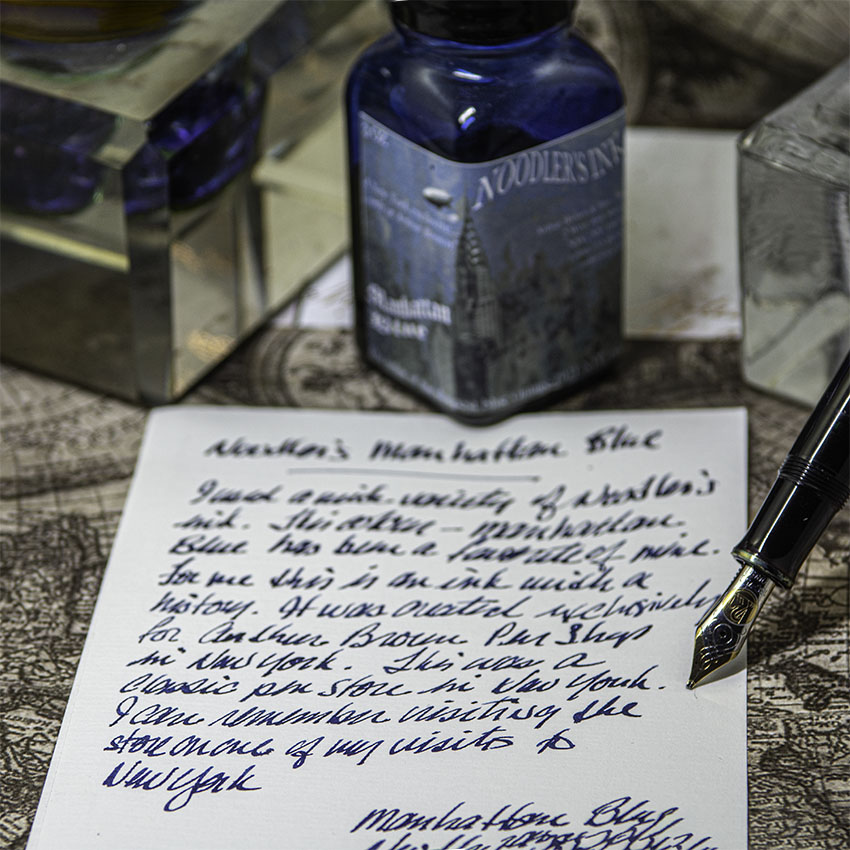 NOODLER'S INK
Manhattan
Blue
Noodler's Manhattan Blue
I used a wide variety of Noodler's
ink. This colour - Manhattan
Blue has been a favorite of mine.
For me this is an ink with a
history. It was created exclusively
for Arthur Brown Pen Shop
in New York. This was a
classic pen store in New York.
I can remember visiting the
store on one of my visits to
New York
Manhattan Blue